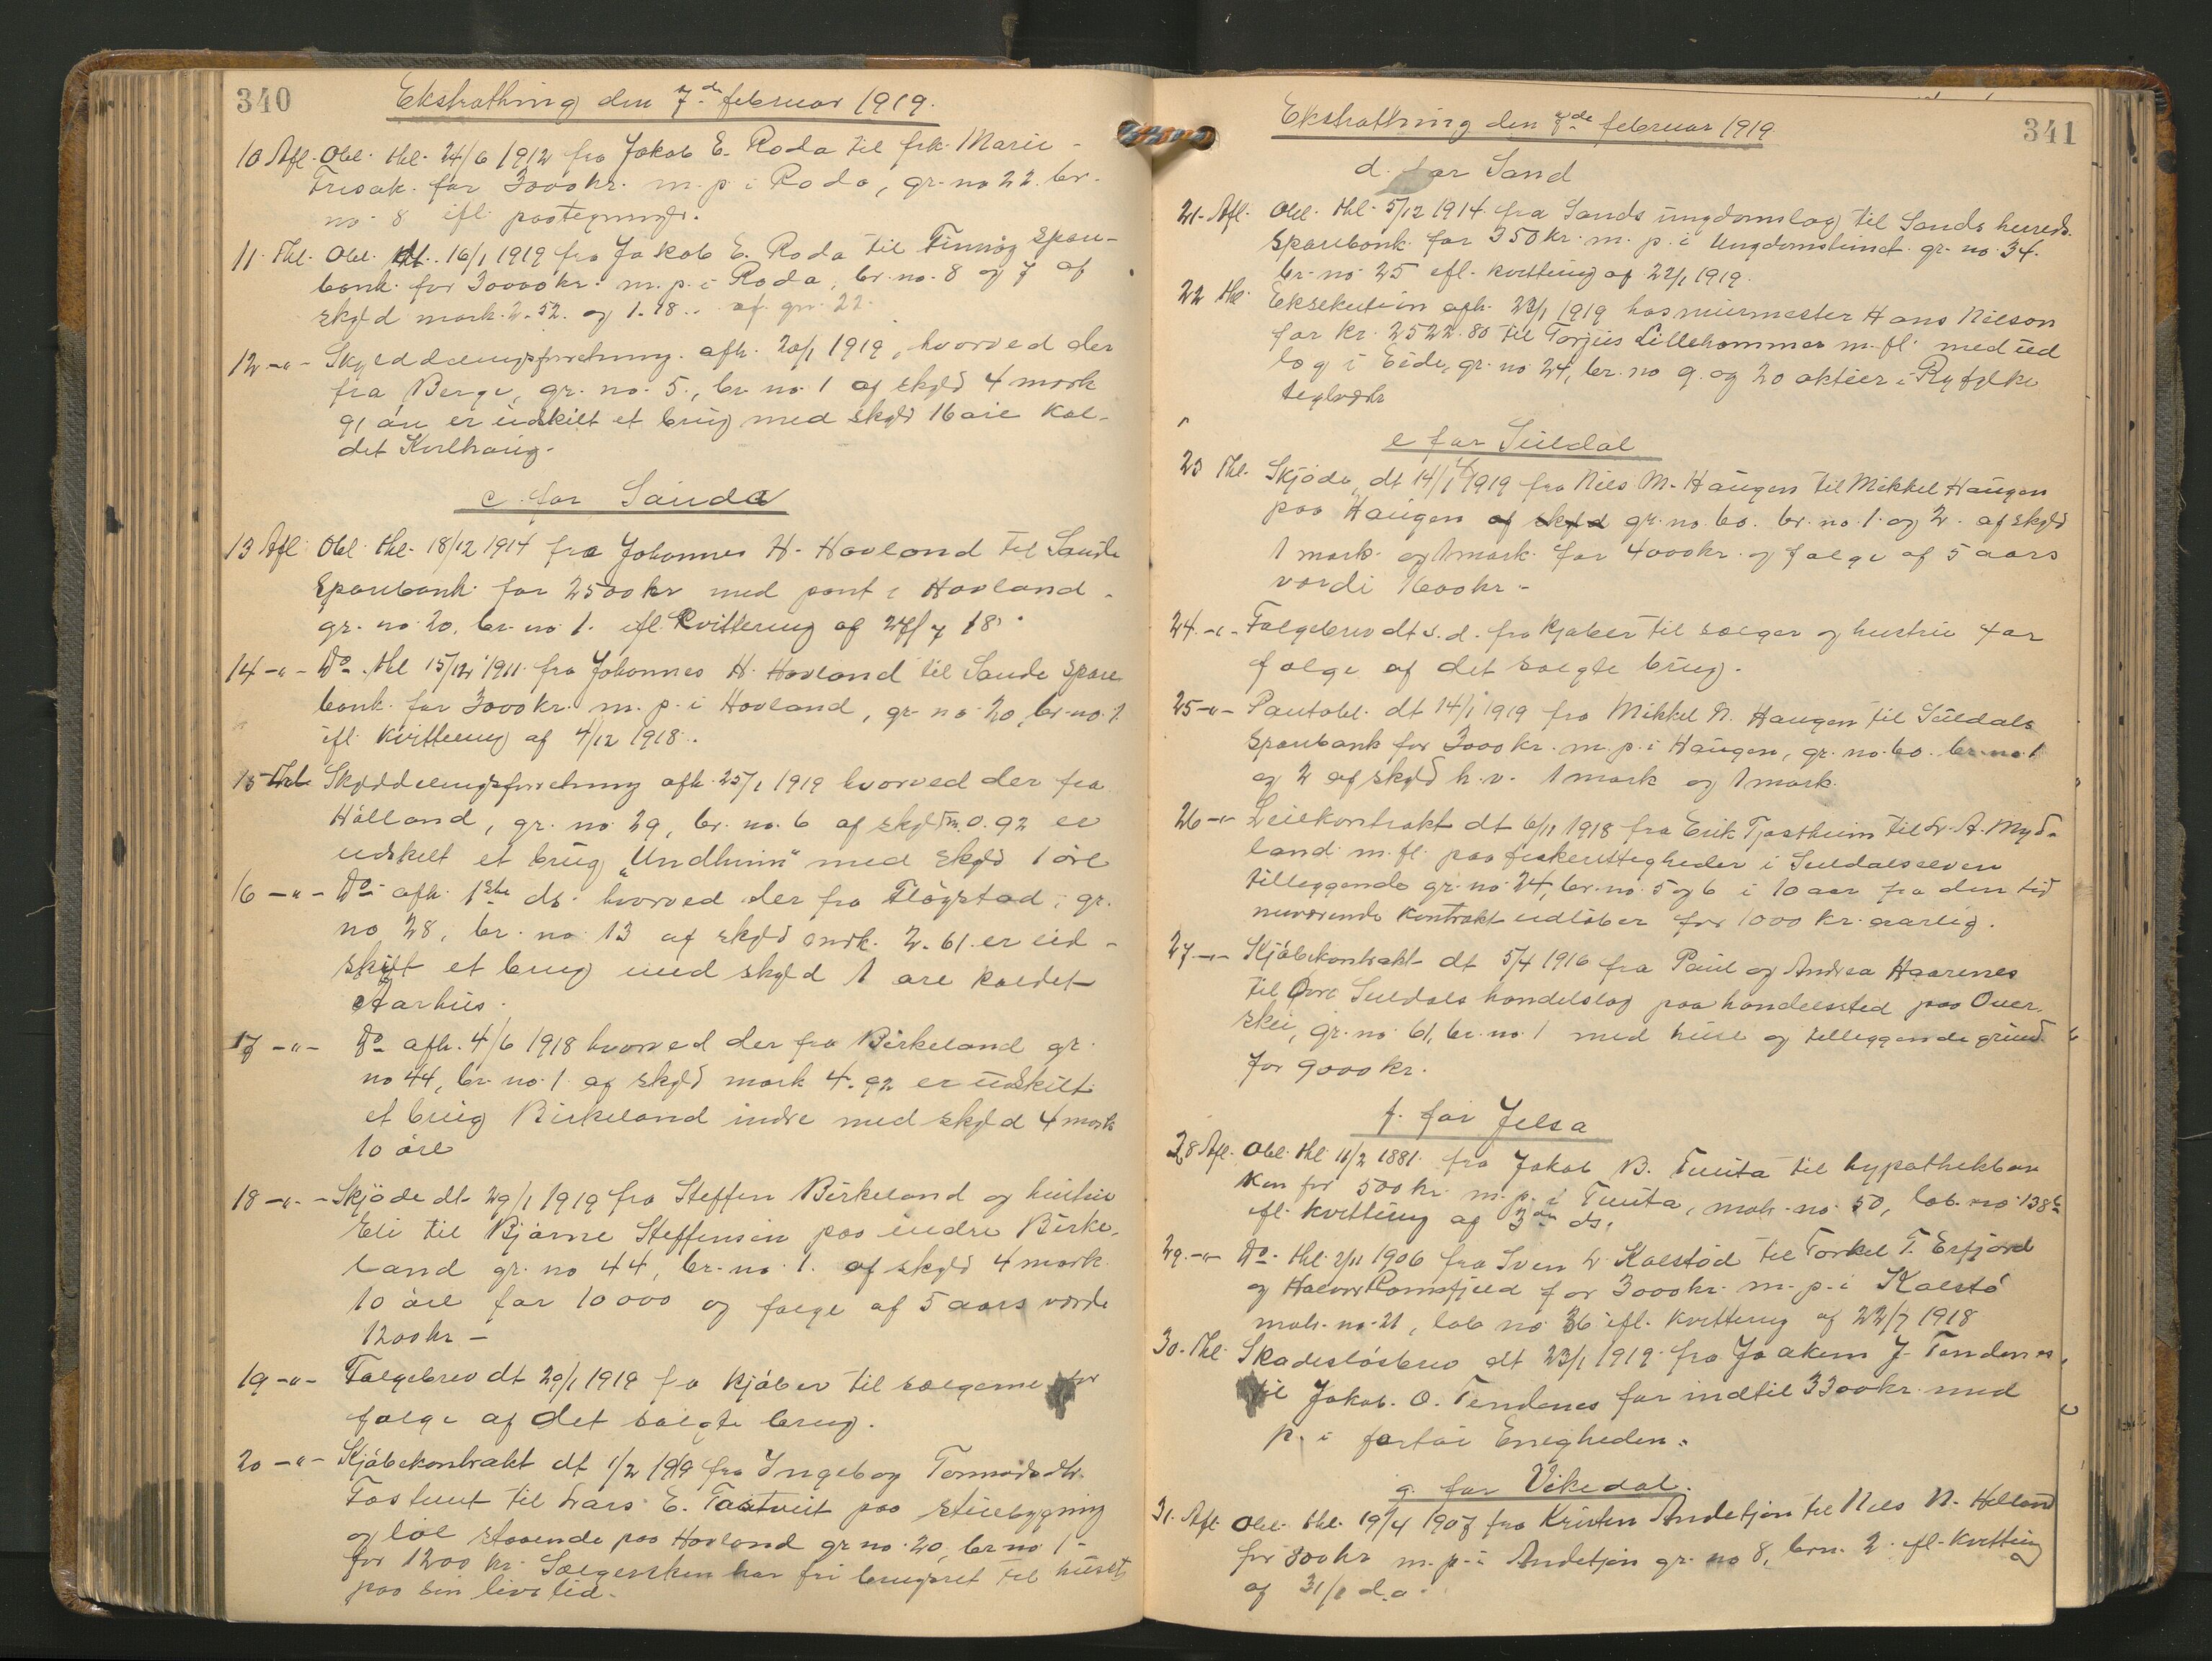 340
Ekstrathing den 7de februar 1919.
10 Afl. Obl. thl. 24/6 1912 fra Jakob E. Roda til frk. Marie
Tresak. for 3000 kr. m. p. i Roda, gr. no 22. br.
no. 8 ifl. paategningr.
11. Thl. Obl. dt. 16/1 1919 fra Jakob E. Roda til Finnøy Spare-
bank for 30000 kr. m. p. i Roda, br. no. 8 og 7 af
skyld mark. 2.52. og 1.18.. af gn. 22.
12 -"- Skylddelingsforretning afh. 20/1 1919, hvorved der
fra Berge, gr. no. 5, br. no. 1 af skyld 4 mark
91 øre er udskilt et brug med skyld 16 øre kal-
det Kvelhaug.
c. for Sauda
13 Afl. Obl. thl. 18/12 1914 fra Johannes H. Hovland til Saude
Sparebank for 2500 kr med pant i Hovland
gr. no. 20. br. no 1. ifl. Kvittering af 27/7 18.
14 -"- Do. thl 15/12 1911. fra Johannes H. Hovland til Saude Spare
bank for 3000 kr. m. p. i Hovland, gr. no 20, br. no. 1
ifl. kvittering af 4/12 1918.
15 Thl. Skylddelingsforretning afh. 25/1 1919 hvorved der fra
Hålland, gr. no 29, br. no. 6 af skyld m. 0.92 er
udskilt et brug, "Undheim" med skyld 1 øre
16 -"- Do afh. 1ste ds. hvorved der fra Fløgstad, gr.
no 28, br. no 13 af skyld mrk. 2.61 er ud-
skilt et brug med skyld 1 øre kaldet
Aarhus.
17 -"- Do afh. 4/6 1918 hvorved der fra Birkeland gr.
no 44, br. no. 1 af skyld mark 4.92 er udskilt
et brug Birkeland indre med skyld 4 mark
10 øre
18 -"- Skjøde dt 29/1 1919 fra Steffen Birkeland og hustru
Eli til Bjarne Steffensen paa indre Birke-
land gr. no 44, br. no. 1. af skyld 4 mark
10 øre for 10 000 og følge af 5 aars værdi
1200 kr -
19 -"- Følgebrev dt 29/1 1919 fra kjøber til sælgerne for
følge af det solgte brug.
20 -"- Kjøbekontrakt dt 1/2 1919 fra Ingeborg Tormodsdtr.
Tostveit til Lars E. Tastveit paa stuebygning
og løe staaende paa Hovland gr no. 20, br no 1 -
for 1200 kr. Sælgersken har fri brugsret til huset
paa sin livstid.
341
Ekstrathing den 7de februar 1919
d. for Sand
21. Afl. Obl. thl. 5/12 1914 fra Sands ungdomslag til Sands hereds
Sparebank for 350 kr. m. p. i Ungdomsheimet gr. no. 34.
br. no 25 ifl. kvittering af 22/1 1919.
22 thl. Eksekution afh. 23/1 1919 hos murmester Hans Nilson
for kr. 2522.80 til Torjus Lillehammer m. fl. med ud
læg i Eide, gr. no 24, br. no 9. og 20 aktier i Ryfylke
teglværk
e for Suldal
23 Thl. Skjøde, dt 14/1 1919 fra Nils M. Haugen til Mikkel Haugen
paa Haugen af skyld gr. no. 60. br. no. 1. og 2. af skyld
1 mark og 1 mark for 4000 kr. og følge af 5 aars
værdi 1600 kr -
24. -"- Følgebrev dt s. d. fra kjøber til sælger og hustru for
følge af det solgte brug.
25 -"- Pantobl. dt 14/1 1919 fra Mikkel N. Haugen til Suldals
Sparebank for 3000 kr. m. p. i Haugen, gr. no. 60. br. no 1
og 2 af skyld h. v. 1 mark og 1 mark.
26 -"- Leiekontrakt dt 6/11 1918 fra Erik Tjostheim til Dr. A. Myd-
land m. fl. paa fiskerettigheder i Suldalselven
tilleggende gr. no. 24, br. no. 5 og 6 i 10 aar fra den tid
nuværende kontrakt udløber for 1000 kr. aarlig.
27 -"- Kjøbekontrakt dt 5/4 1916 fra Paul og Andrea Haarenes
til Øvre Suldals handelslag paa handelssted paa Over-
skei, gr. no. 61, br. no. 1 med huse og tilleggende grund
for 9000 kr.
f. for Jelsa
28 Afl. Obl. thl. 11/2 1881. fra Jakob B. Tuuta til hypothekban
ken for 500 kr. m. p. i Tuuta, matr. no. 50, løb. no 138b
ifl. kvittering af 3die ds.
29. -"- Do. thl. 2/11 1906 fra Sven L. Kalstø til Torkel T. Erfjord
og Halvor Ramsfjeld for 3000 kr. m. p. i Kalstø
matr. no. 21, løb no 36 ifl. kvittering af 22/7 1918
30. Thl. Skadesløsbrev dt 23/1 1919 fra Joakim J. Tendenes,
til Jakob. O. Tendenes for indtil 3300 kr. med
p. i fartøi Enigheden.
g. for Vikedal.
31. Afl. Obl. thl. 19/4 1907 fra Kristen Andetjøn til Nils N. Helland
for 800 kr m. p. i Andetjøn gr. no 8, brn. 2. ifl. kvittering
af 31/1 d. a.